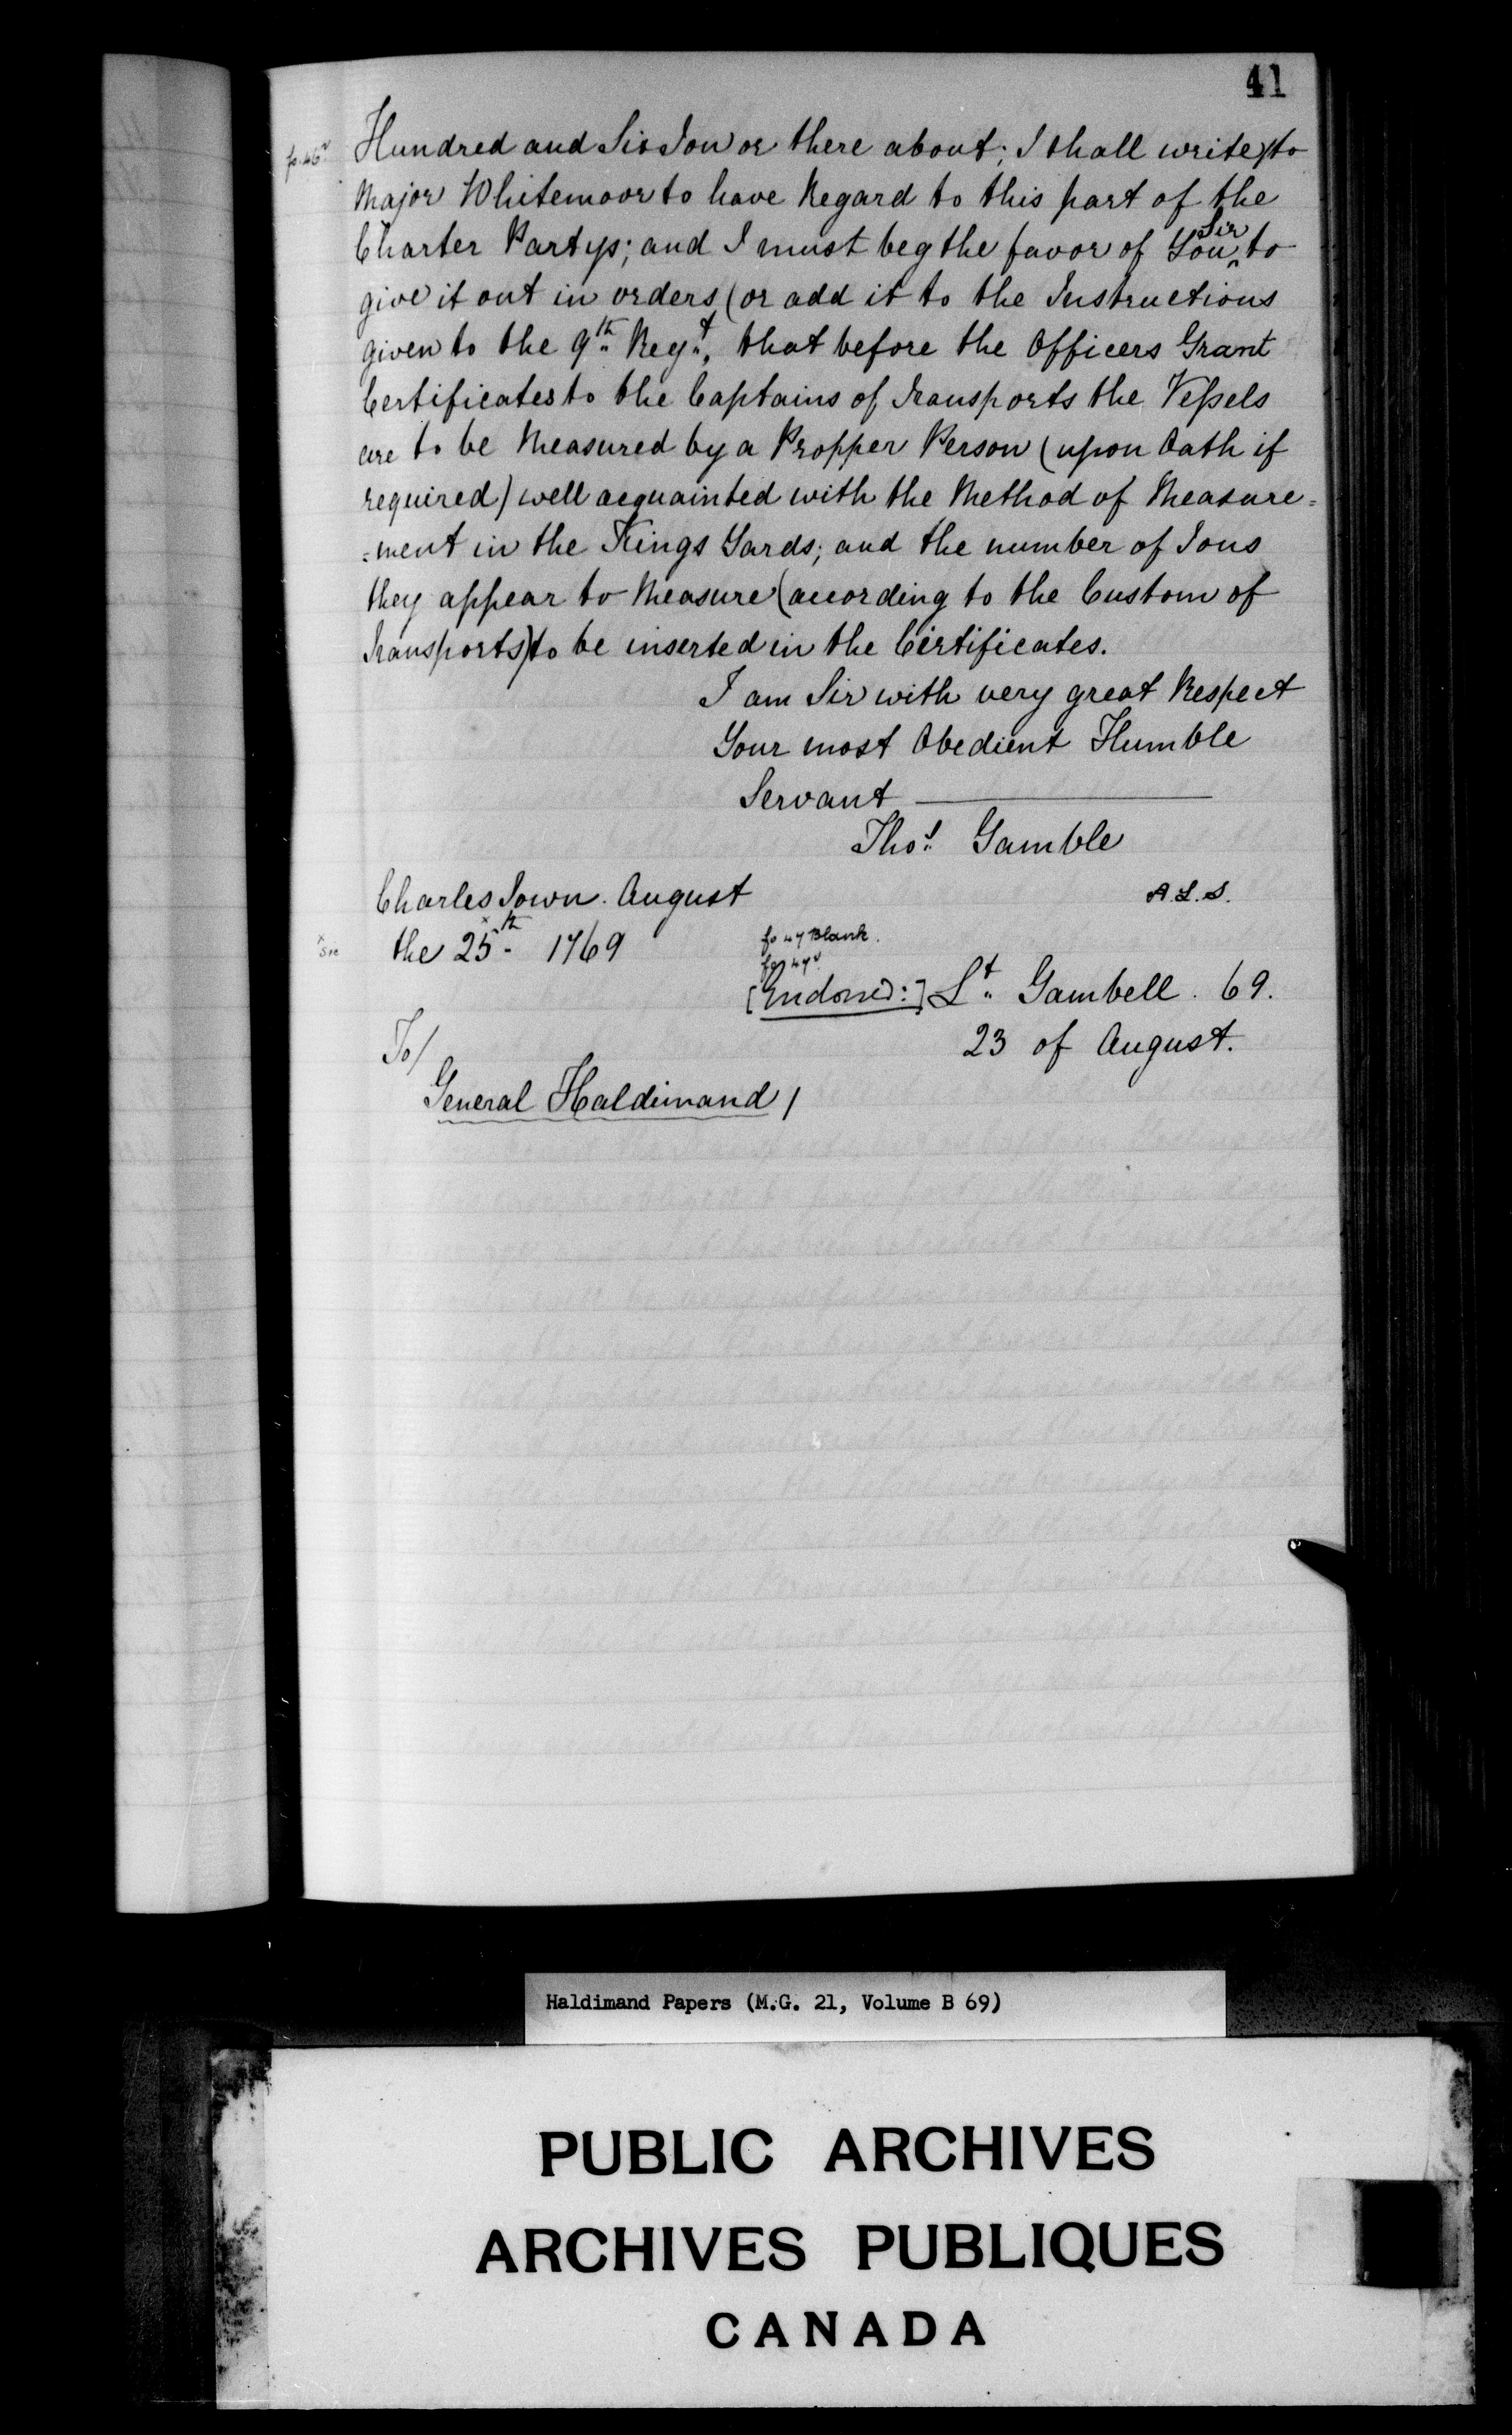 41
fo. 46v Hundred and Six Ton or there about; I shall write to
Major Whitemoor to have Regard to this part of the
Charter Partys; and I must beg the favor of You, ^Sir to
give it out in orders (or add it to the Instructions
given to the 9th Regt, that before the Officers Grant
Certificates to the Captains of Transports the Veſsels
are to be Measured by a Propper Person (upon Oath if
required) well acquainted with the Method of Measure=
=ment in the Kings Yards; and the number of Tons
they appear to Measure (according to the Custom of
Transports) to be inserted in the Certificates.
I am Sir with very great Respect
Your most Obedient Humble
Servant
Thos Gamble
Charles Town. August
A.L.S.
x sic the 25th x 1769
fo 47 Blank.
fo 47v
[Endorsed:] Lt Gambell. 69.
23 of August.
To/
General Haldimand/
Haldimand Papers (M.G. 21, Volume B 69)
PUBLIC ARCHIVES
ARCHIVES PUBLIQUES
CANADA